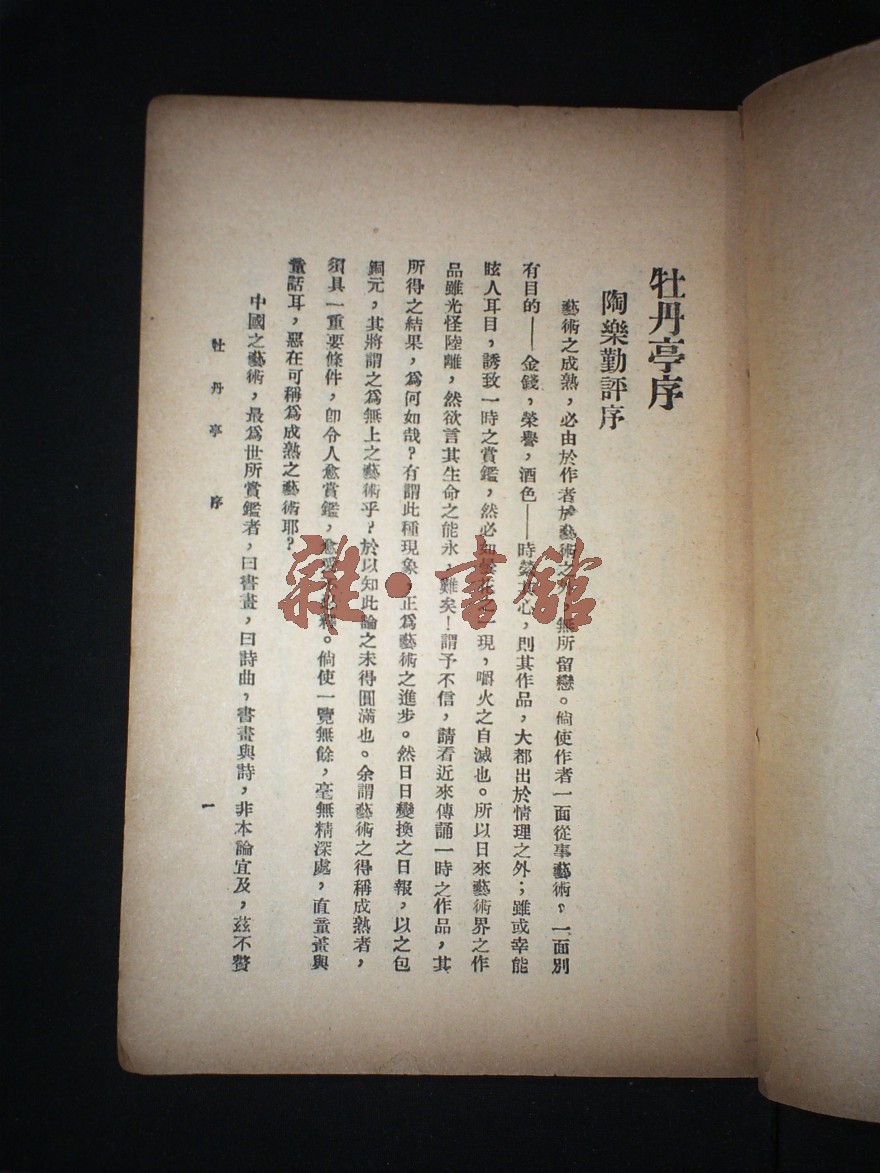 牡丹亭序
陶樂勤評序
藝術之成熟，必由於作者於藝術之，無所留戀。倘使作者一面從事藝術，一面別
有目的——金錢，榮譽，酒色——時縈心，則其作品，大都出於情理之外；雖或幸能
眩人耳目，誘致一時之賞鑑，然必如一現，嚼火之自滅也。所以日來藝術界之作
品雖光怪陸離，然欲言其生命之能永，難矣！謂予不信，請看近來傳誦一時之作品，其
所得之結果，為何如哉？有謂此種現象，正為藝術之進步。然日日變換之日報，以之包
銅元，其將謂之為無上之藝術乎？於以知此論之未得圓滿也。余謂藝術之得稱成熟者，
須具一重要條件，卽令人愈賞鑑，愈愛。倘使一覽無餘，毫無精深處，直童畫與
童話耳，惡在可稱為成熟之藝術耶？
中國之藝術，最為世所賞鑑者，曰書畫，曰詩曲，書畫與詩，非本論宜及，茲不贅
牡丹亭 序
一
雜·書館